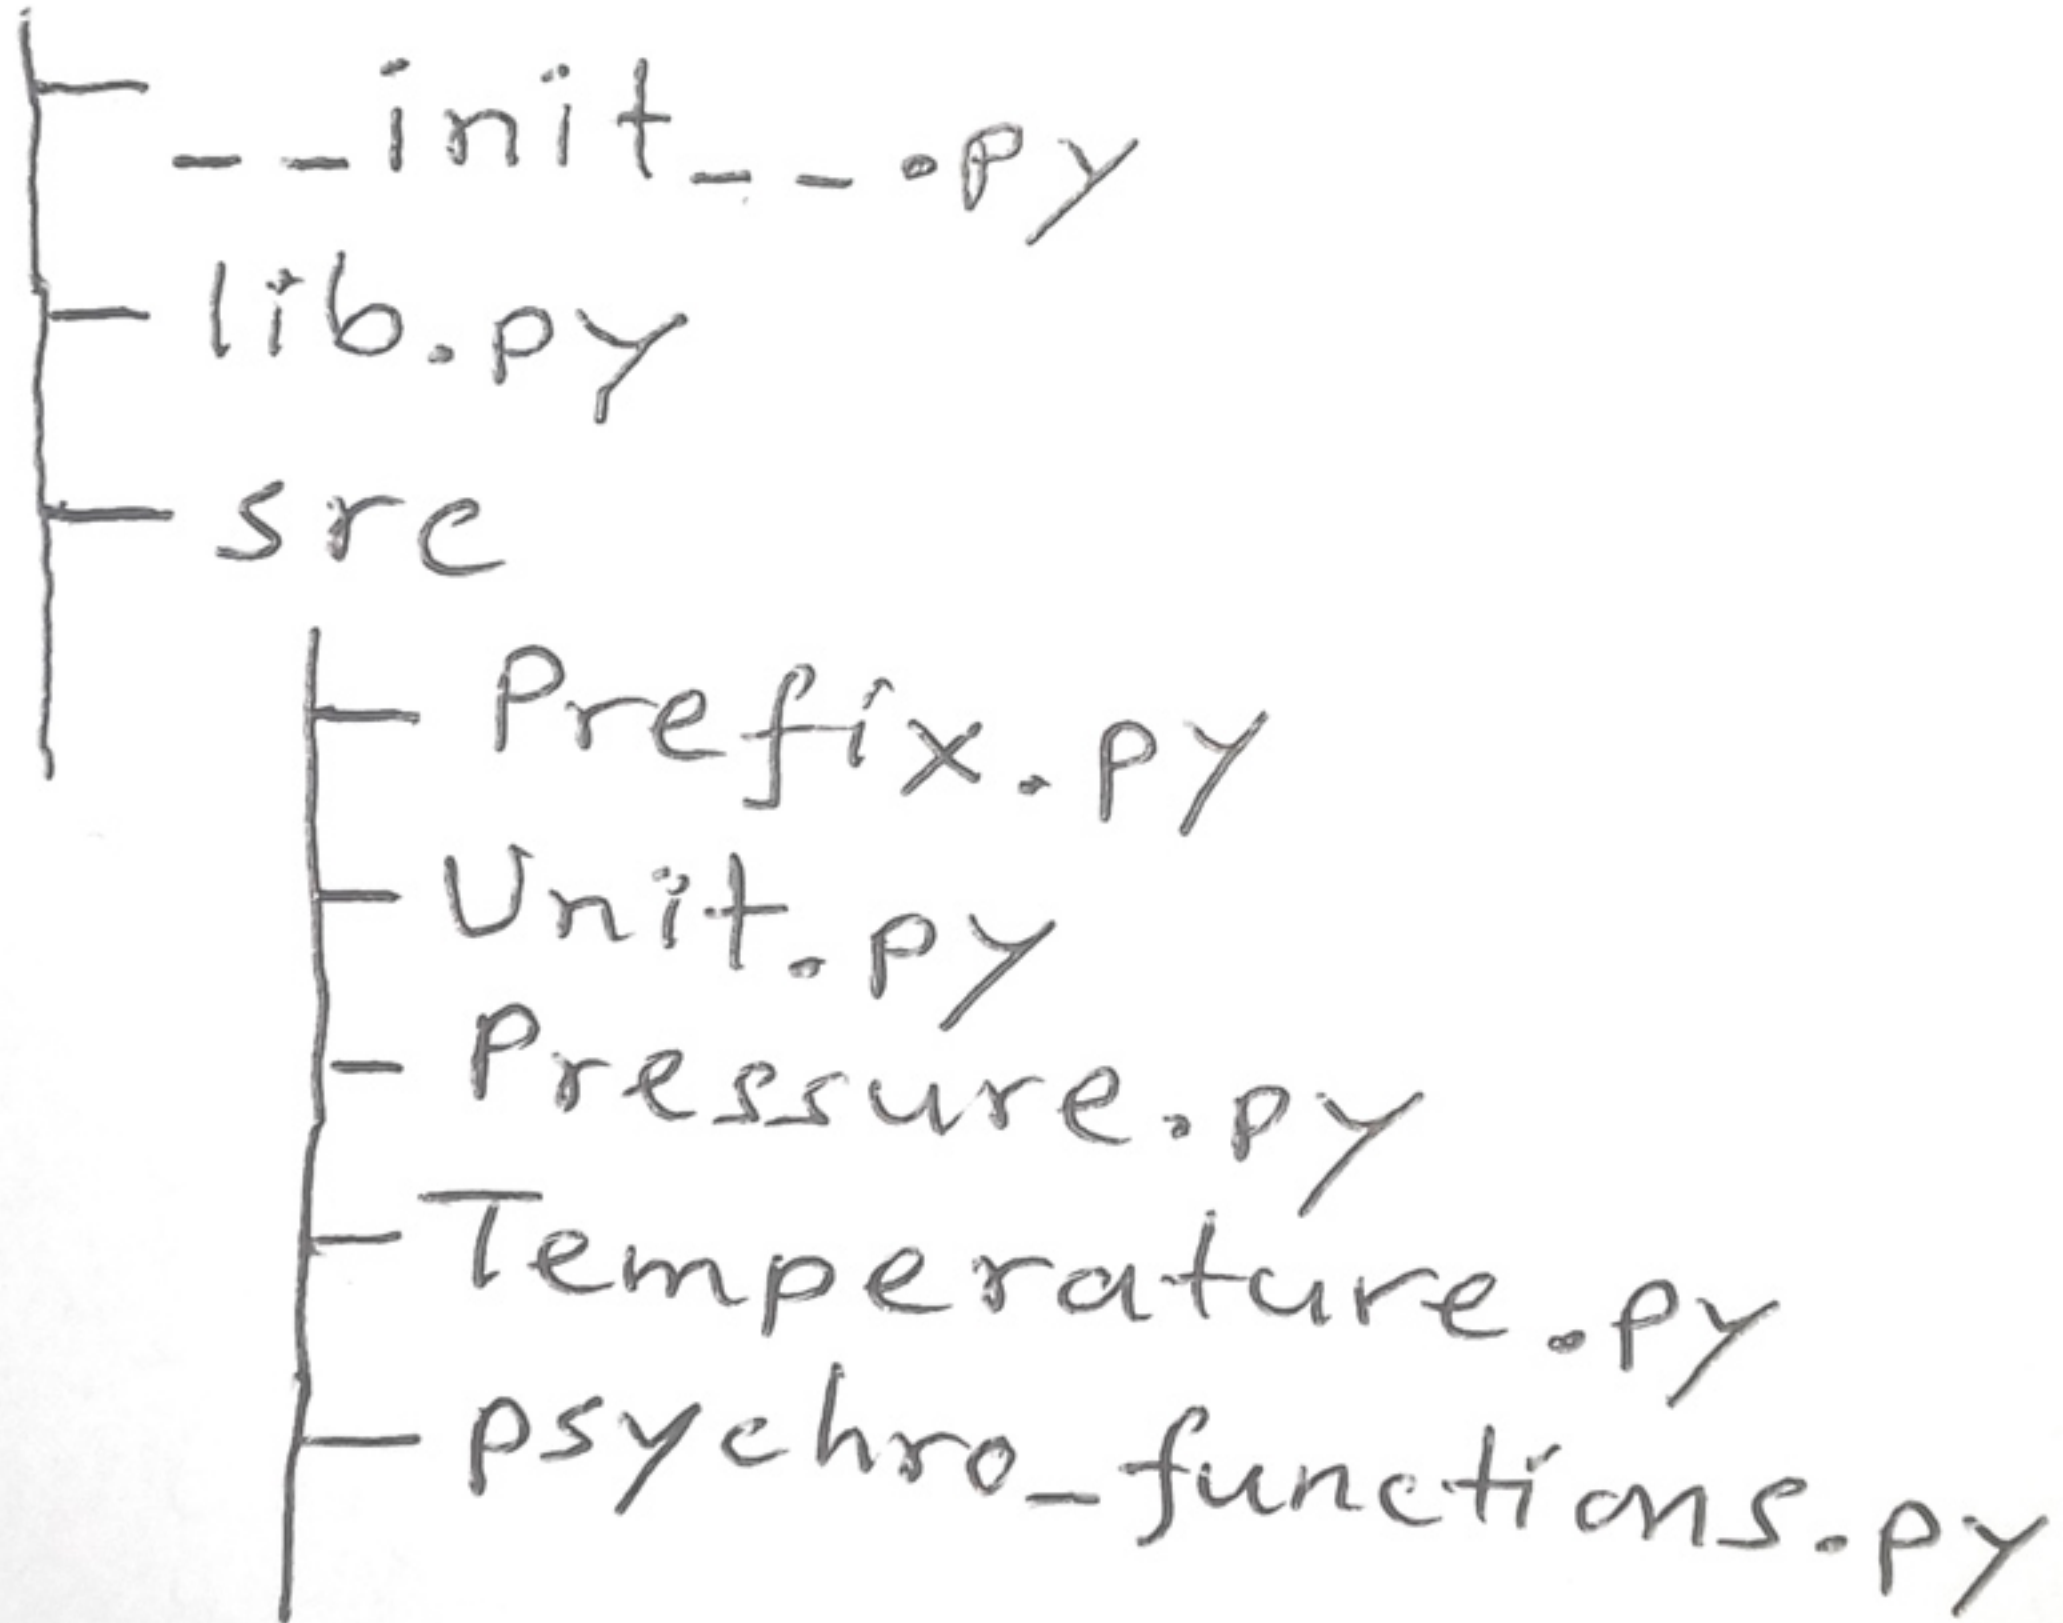 __init__.py
lib.py
src
Prefix.py
Unit.py
Pressure.py
Temperature.py
psychro_functions.py